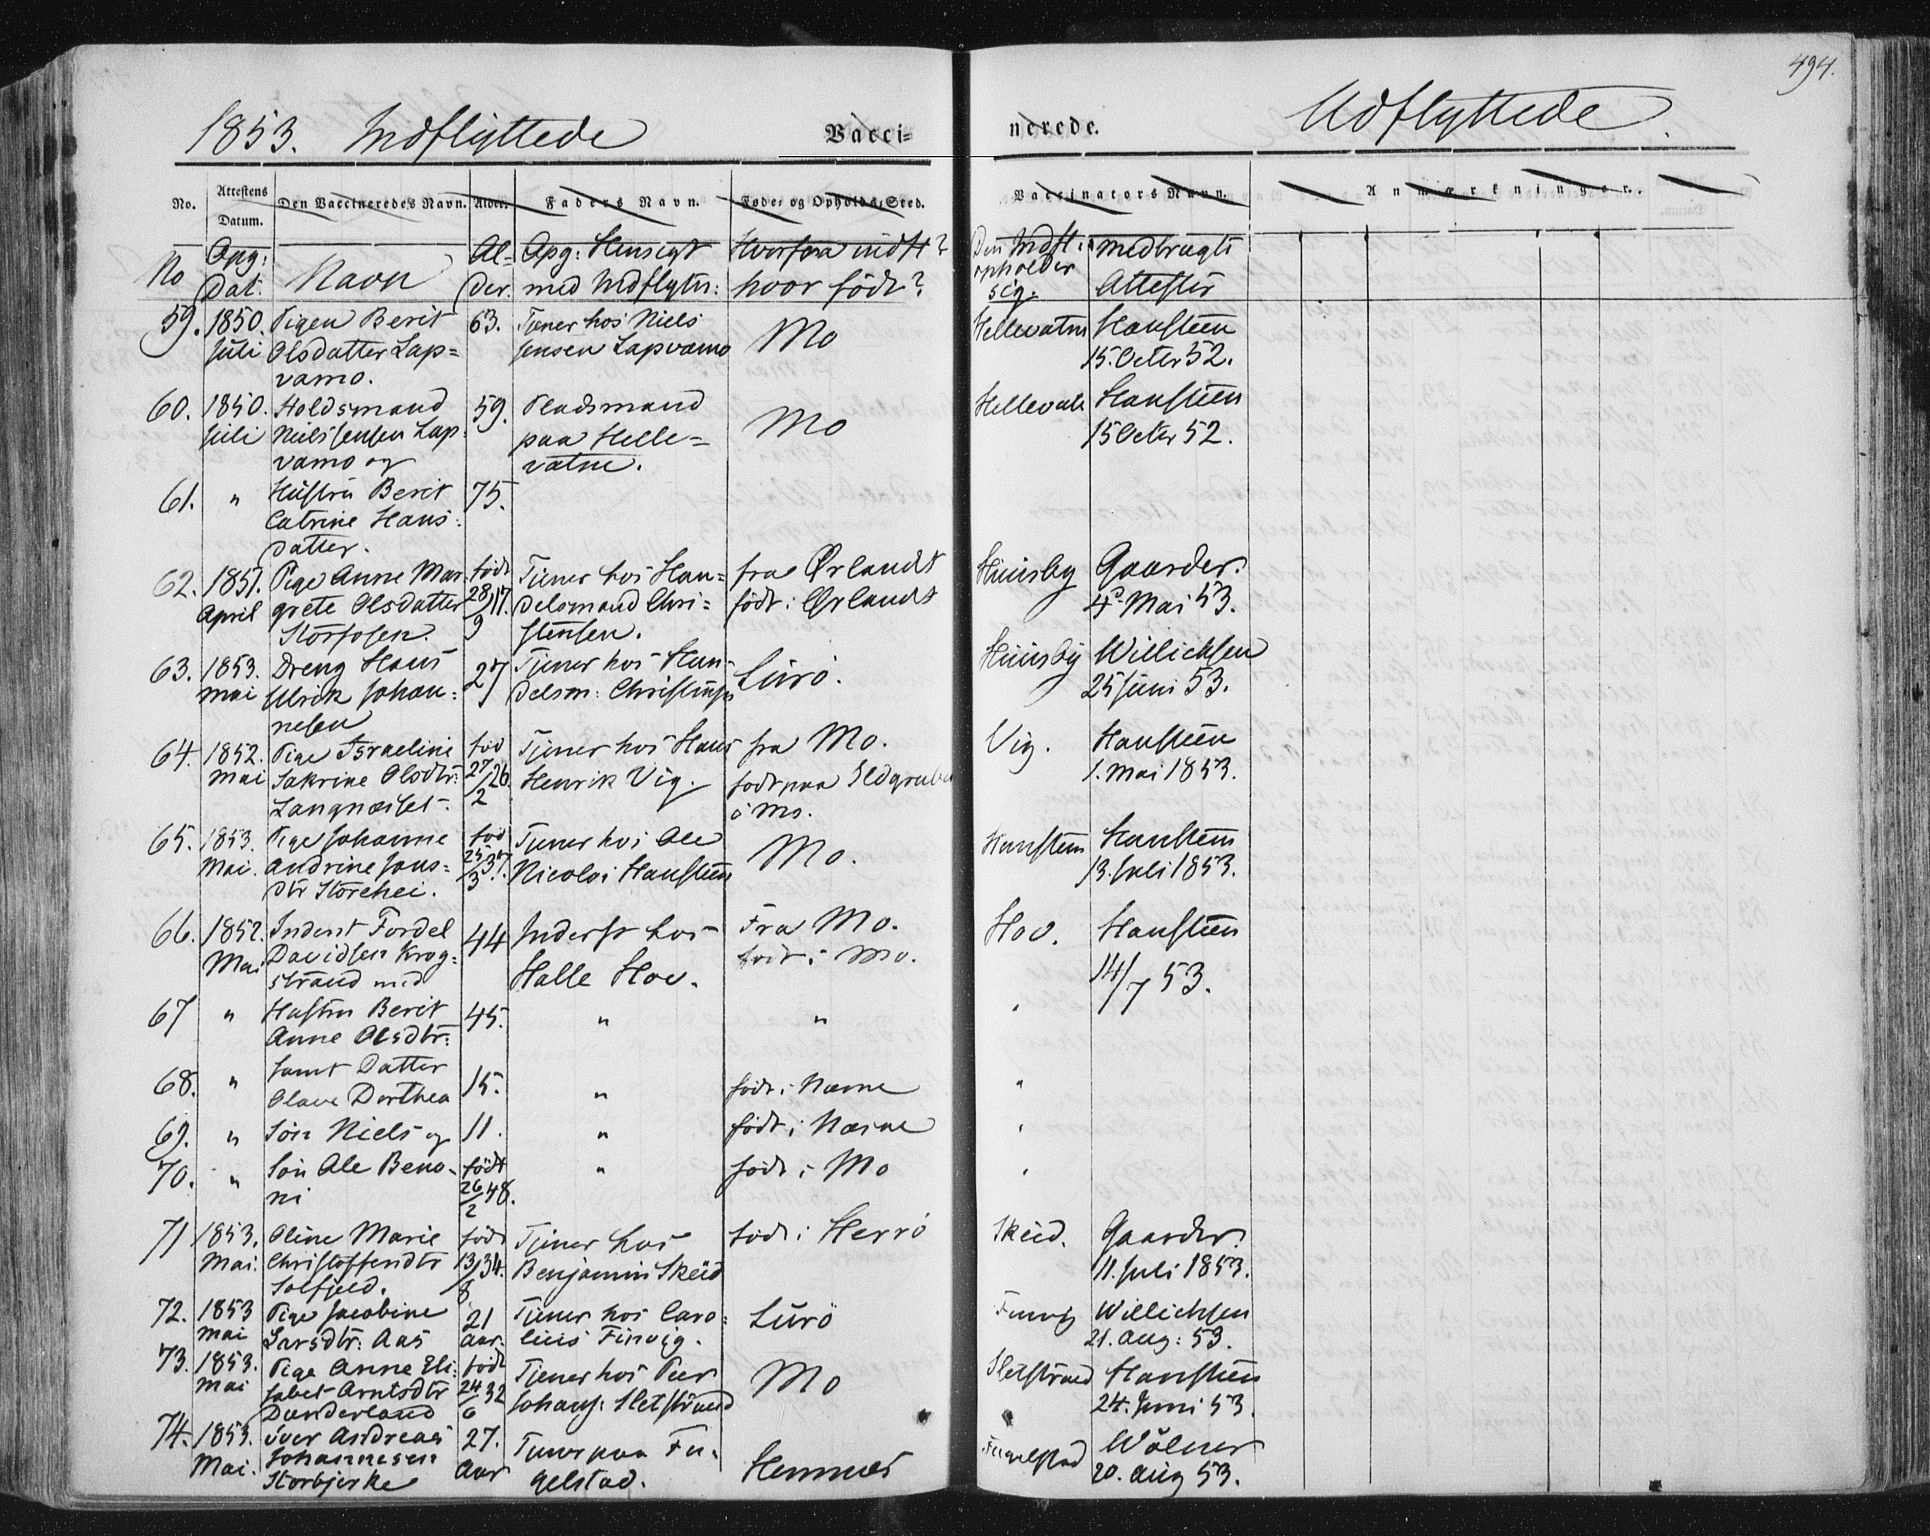 494.
1853. Indflyttede
Vacci-
nerede.
Udflyttede.
No.
Attestens Datum.
Den Vaccineredes Navn.
Alder.
Faders Navn.
Føde- og Opholds-Sted.
Vaccinators Navn.
Anmærkninger.
No
Opg: Dat:
Navn
Al-
der.
Opg: Hensigt
med Indflytn:
Hvorfra indfl?
hvor født?
Den Indfl:
opholder
sig.
medbragte
Attester
59. 1850. Pigen Berit 63. Tjener hos Niels Mo Hellevatne Hansteen
Juli Olsdatter Lap= Jensen Lapvamo 15. Octer 52.
vamo.
60. 1850. Holdsmand 59. Pladsmand Mo Hellevatn Hansteen
Juli Niels Jensen Lap- paa Helle= 15 Octer 52.
vamo og vatne.
61. " Hustru Berit 75.
Catrine Hans:
datter.
62. 1851. Pige Anne Mar- født Tjener hos Han= fra Ørlandt Huusby Gaarder.
April grete Olsdatter 28/9 17. delsmand Chri= født i Ørlandt 4de Mai 53.
Storfosen. stensen.
63. 1853. Dreng Hans 27 Tjener hos Han- Lurö. Huusby Willichsen
Mai Ulrik Johan= delsm: Christensen 25 Juni 53.
nesen
64. 1852. Pige Israeline fød Tjener hos Hans fra Mo. Vig. Hansteen
Mai Sakrine Olsdtr: 27/2 26. Henrik Vig. født paa Ildgruben 1. Mai 1853.
Langnæset. i Mo.
65. 1853. Pige Johanne fød Tjener hos Ole Mo. Hansteen Hansteen
Mai. Andrine Jons- 25/3 37. Nicolai Hansteen 13. Juli 1853.
dtr Storehei.
66. 1852. Inderst Fordel 44 Inderst hos Fra Mo. Hov. Hansteen
Mai Davidsen Krog- Halle Hov. født i Mo. 14/7 53.
strand med
67 " Hustru Berit 45. " "
Anne Olsdtr:
68. " samt Datter 15. " født i Nærne "
Olave Dorthea
69. " Søn Niels og 11. " født i Nærne "
70. " Søn Ole Beno- født " født i Mo "
ni 26/2 48.
71 1853. Oline Marie født Tjener hos født i Herrö Skeid. Gaarder.
Mai. Christoffersdtr 13/8 34. Benjamin Skeid 11. Juli 1853.
Solfjeld.
72. 1853 Pige Jacobine 21 Tjener hos Caro= Lurö Finvig Willichsen
Mai Larsdtr: Aas aar. lius Finvig. 21. Aug: 53.
73. 1853. Pige Anne Eli- født Tjener hos Peer Mo Sletstrand Hansteen
Mai sabet Arntsdtr 24/6 32 Johans: Sletstrand 24. Juni 53.
Dunderland
74. 1853. Iver Andreas 27. Tjener paa Fu- Hemnes Fugelstad Wölner
Mai. Johannesen aar gelstad. 20. Aug 53.
Storbjerke